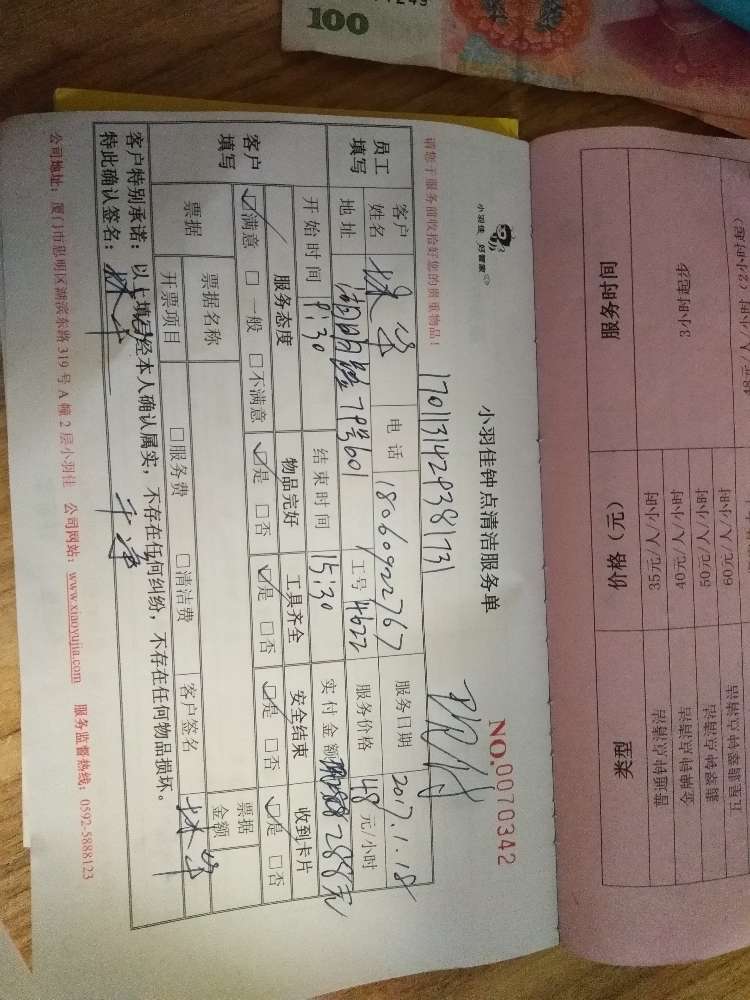 小羽佳 好管家
小羽佳钟点清洁服务单
NO.0070342
请您于服务前收拾好您的贵重物品！
1701131429381731
员工填写
客户姓名
电话 18060922767
服务日期 2017.1.18
地址 湖明路78号601
工号 4622
服务价格 48元/小时
开始时间 9:30
结束时间 15:30
实付金额 288元
客户填写
服务态度 物品完好 工具齐全 安全结束 收到卡片
☑满意 □一般 □不满意 ☑是 □否 ☑是 □否 ☑是 □否 ☑是 □否
票据
票据名称
票据金额
开票项目 □服务费 □清洁费
客户签名
客户特别承诺：以上填写经本人确认属实，不存在任何纠纷，不存在任何物品损坏。
特此确认签名：
干净
公司地址：厦门市思明区湖滨东路319号A幢2层小羽佳 公司网站：www.xiaoyujia.com 服务监督热线：0592-5888123
类型 价格（元） 服务时间
普通钟点清洁 35元/人/小时 3小时起步
金牌钟点清洁 40元/人/小时
翡翠钟点清洁 50元/人/小时
五星翡翠钟点清洁 60元/人/小时
100